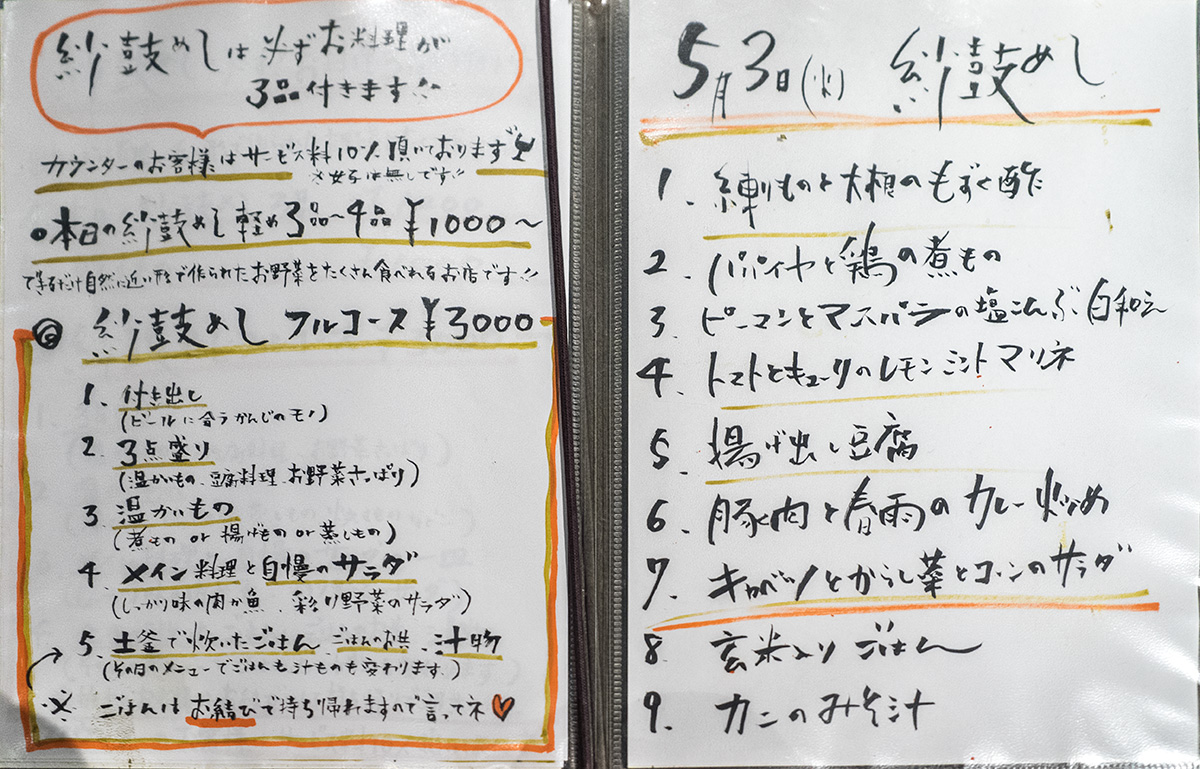 紗鼓めしは必ずお料理が
3品付きます!!
カウンターのお客様はサービス料10%頂いております
※女子は無しです!!
本日の紗鼓めし軽め3品〜4品¥1000〜
できるだけ自然に近い形で作られたお野菜をたくさん食べれるお店です!!
◎ 紗鼓めし フルコース¥3000
1、付き出し
(ビールに合うかんじのモノ)
2、3点盛り
(温かいもの、豆腐料理、お野菜さっぱり)
3、温かいもの
(煮もの or 揚げもの or 蒸しもの)
4、メイン料理と自慢のサラダ
(しっかり味の肉か魚、彩り野菜のサラダ)
5、土釜で炊いたごはん、ごはんのお供、汁物
(その日のメニューでごはんも汁ものも変わります。)
※ ごはんはお結びで持ち帰れますので言ってネ♡
5月3日(火) 紗鼓めし
1、練りものと大根のもずく酢
2、パパイヤと鶏の煮もの
3、ピーマンとアスパラの塩こんぶ白和え
4、トマトとキューリのレモンミントマリネ
5、揚げ出し豆腐
6、豚肉と春雨のカレー炒め
7、キャベツとからし菜とコーンのサラダ
8、玄米入りごはん
9、カニのみそ汁